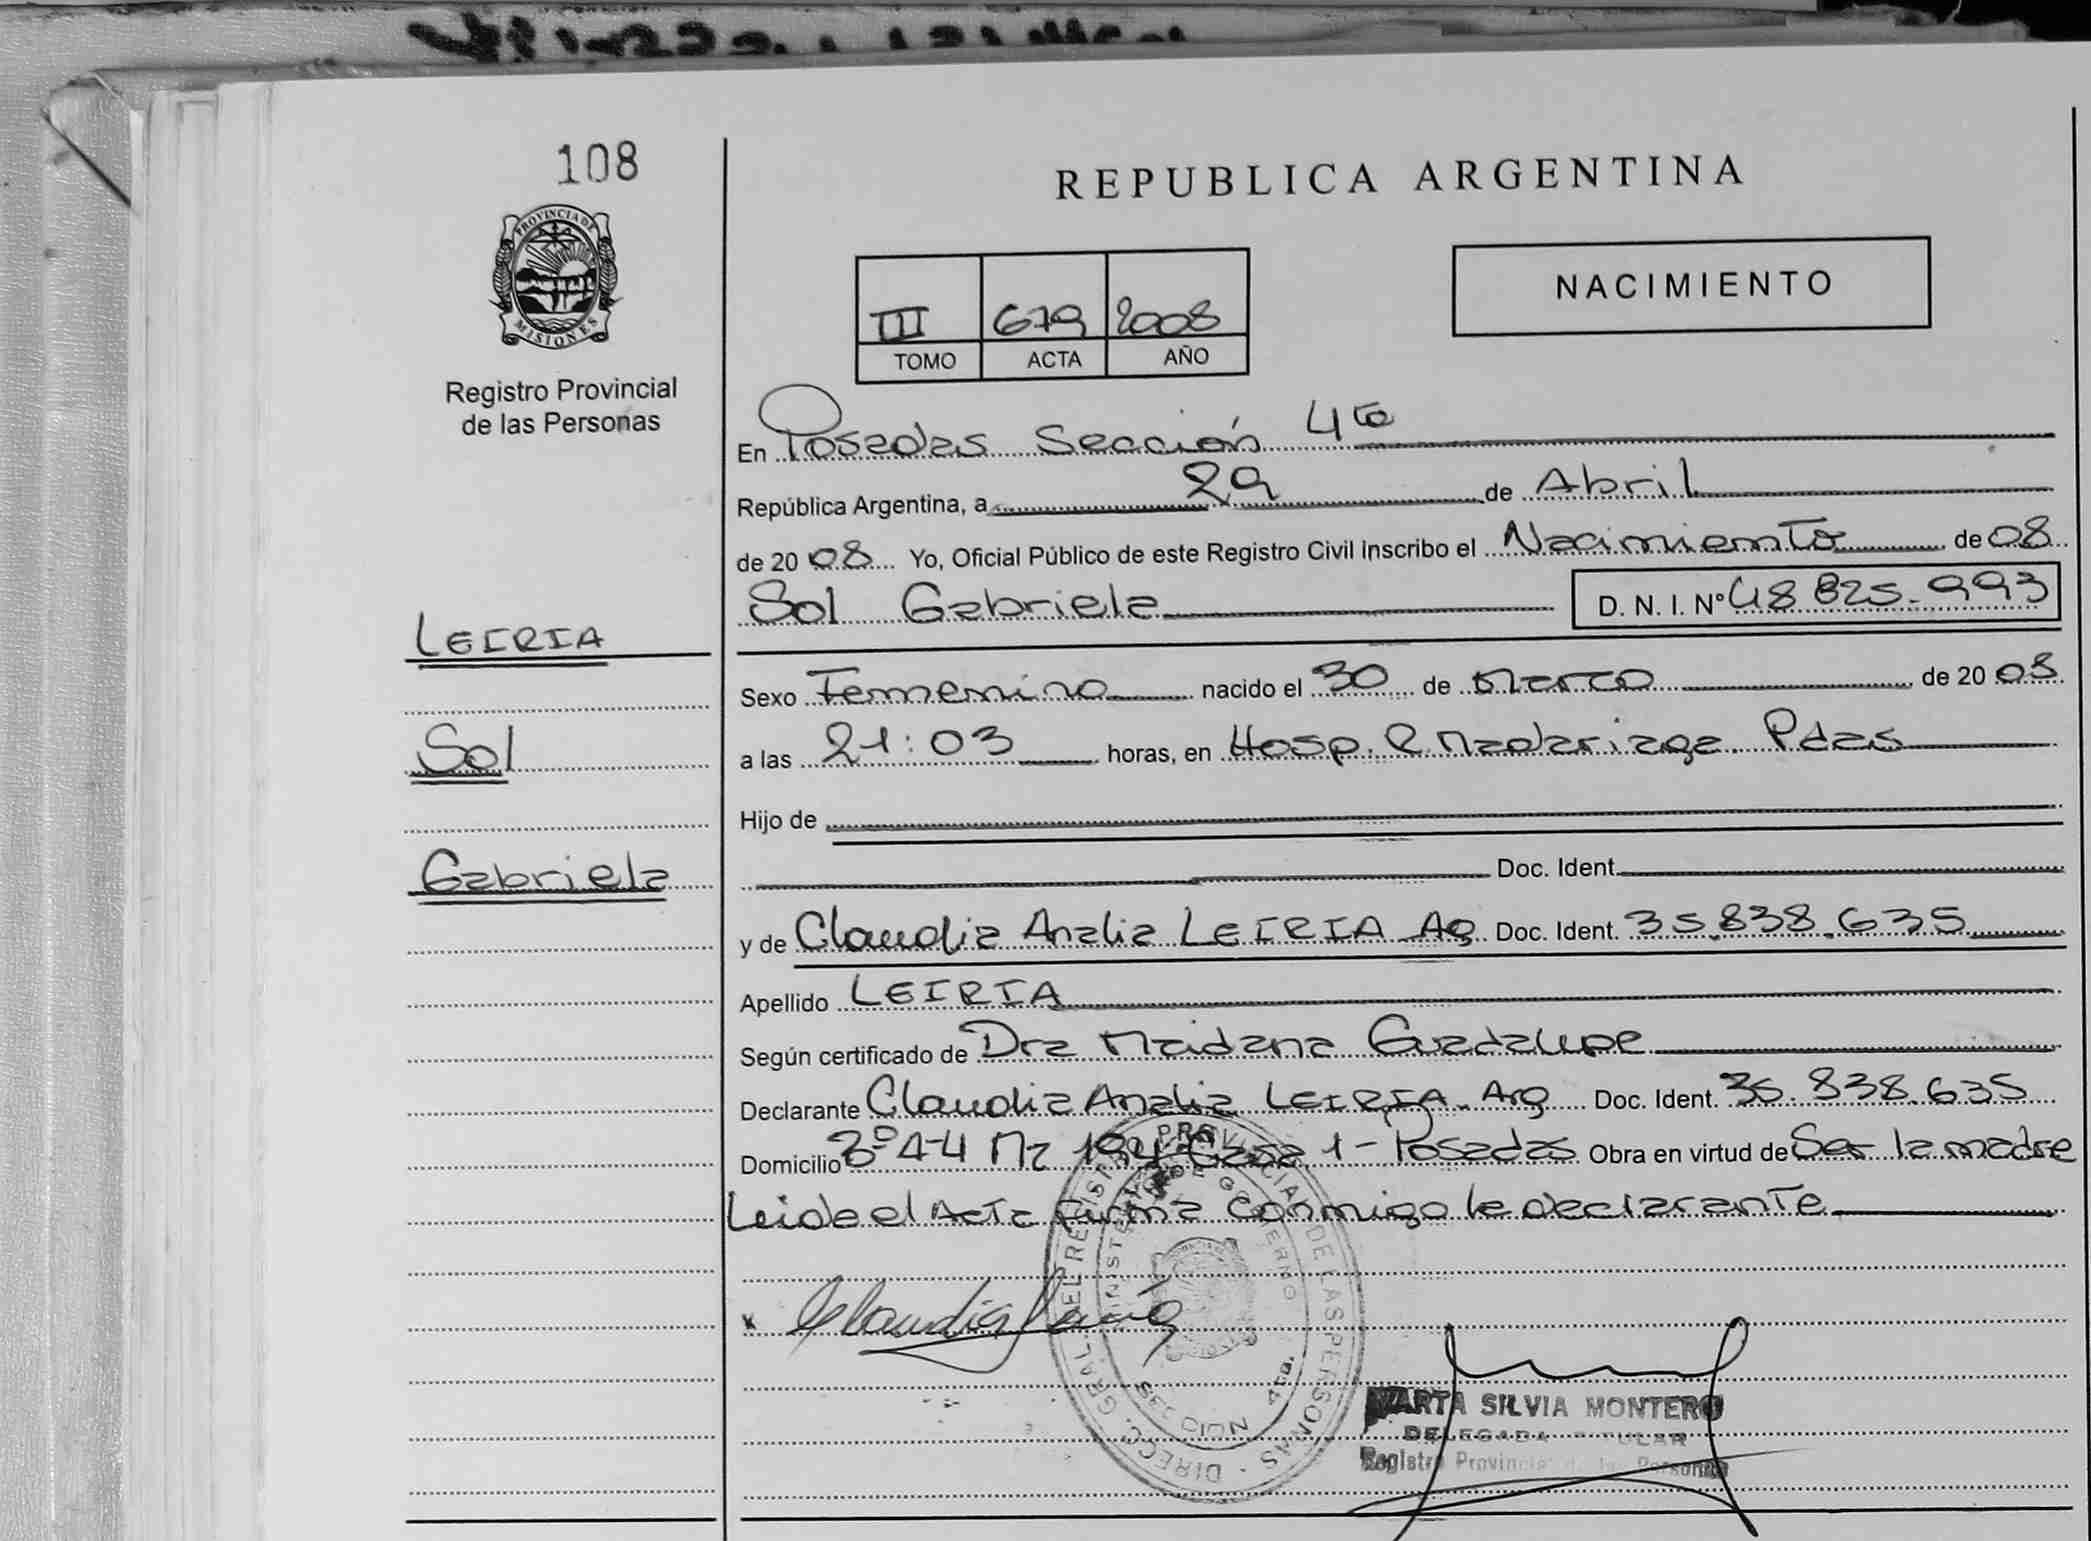 108
REPUBLICA ARGENTINA
PROVINCIA DE
MISIONES
Registro Provincial
de las Personas
NACIMIENTO
III 679 2008
TOMO ACTA AÑO
En Posadas Sección 4ta
República Argentina, a 29 de Abril
de 20 08 Yo, Oficial Público de este Registro Civil inscribo el Nacimiento de 08
Sol Gabriela D. N. I. Nº 48 825.993
LEIRIA
Sol
Gabriela
Sexo Femenino nacido el 30 de Marzo de 20 08
a las 21:03 horas, en Hosp. R Madariaga Pdas
Hijo de
Doc. Ident.
y de Claudia Analia LEIRIA Ag Doc. Ident. 35.838.635
Apellido LEIRIA
Según certificado de Dra Maidana Guadalupe
Declarante Claudia Analia LEIRIA. Arg Doc. Ident. 35.838.635
Domicilio A-4 Mz 194 Casa 1 - Posadas Obra en virtud de Ser la madre
Leida el Acta firma conmigo la declarante
DIRECC. GRAL. DEL REGISTRO PROVINCIAL DE LAS PERSONAS
MINISTERIO DE GOBIERNO
4ta.
MARTA SILVIA MONTERO
DELEGADA TITULAR
Registro Provincial de las Personas